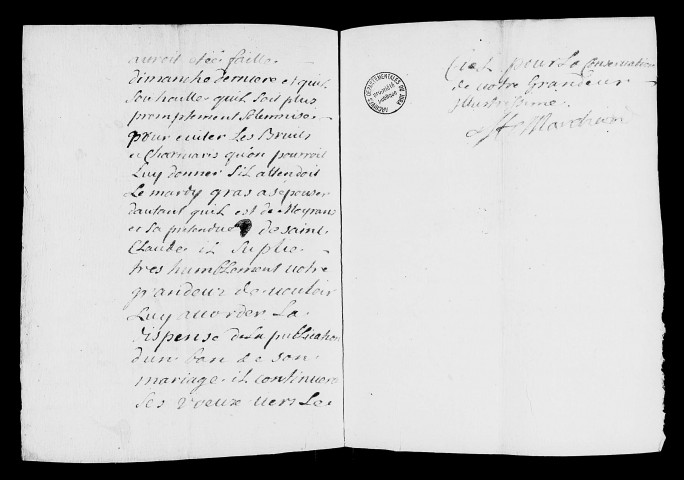 auroit etée faille
dimanche derniere et quil
souhaille quil soit plus
promptement solemniser
pour euiter Les Bruits
et Charivaris qu'on pourroit
Luy donner sil attendoit
Le mardy gras a sépouser
dautant quil est de Moyrans
et sa pretendue de saint
Claude il suplie
tres humblement votre
grandeur de vouloir
Luy accorder La
dispense de La publication
d'un ban de son
mariage il continuera
ses voeux vers Le
Ciel pour La Conservation
de votre Grandeur
Illustrissime
ARCHIVES DEPARTEMENTALES DU JURA
PROPRIETE PUBLIQUE